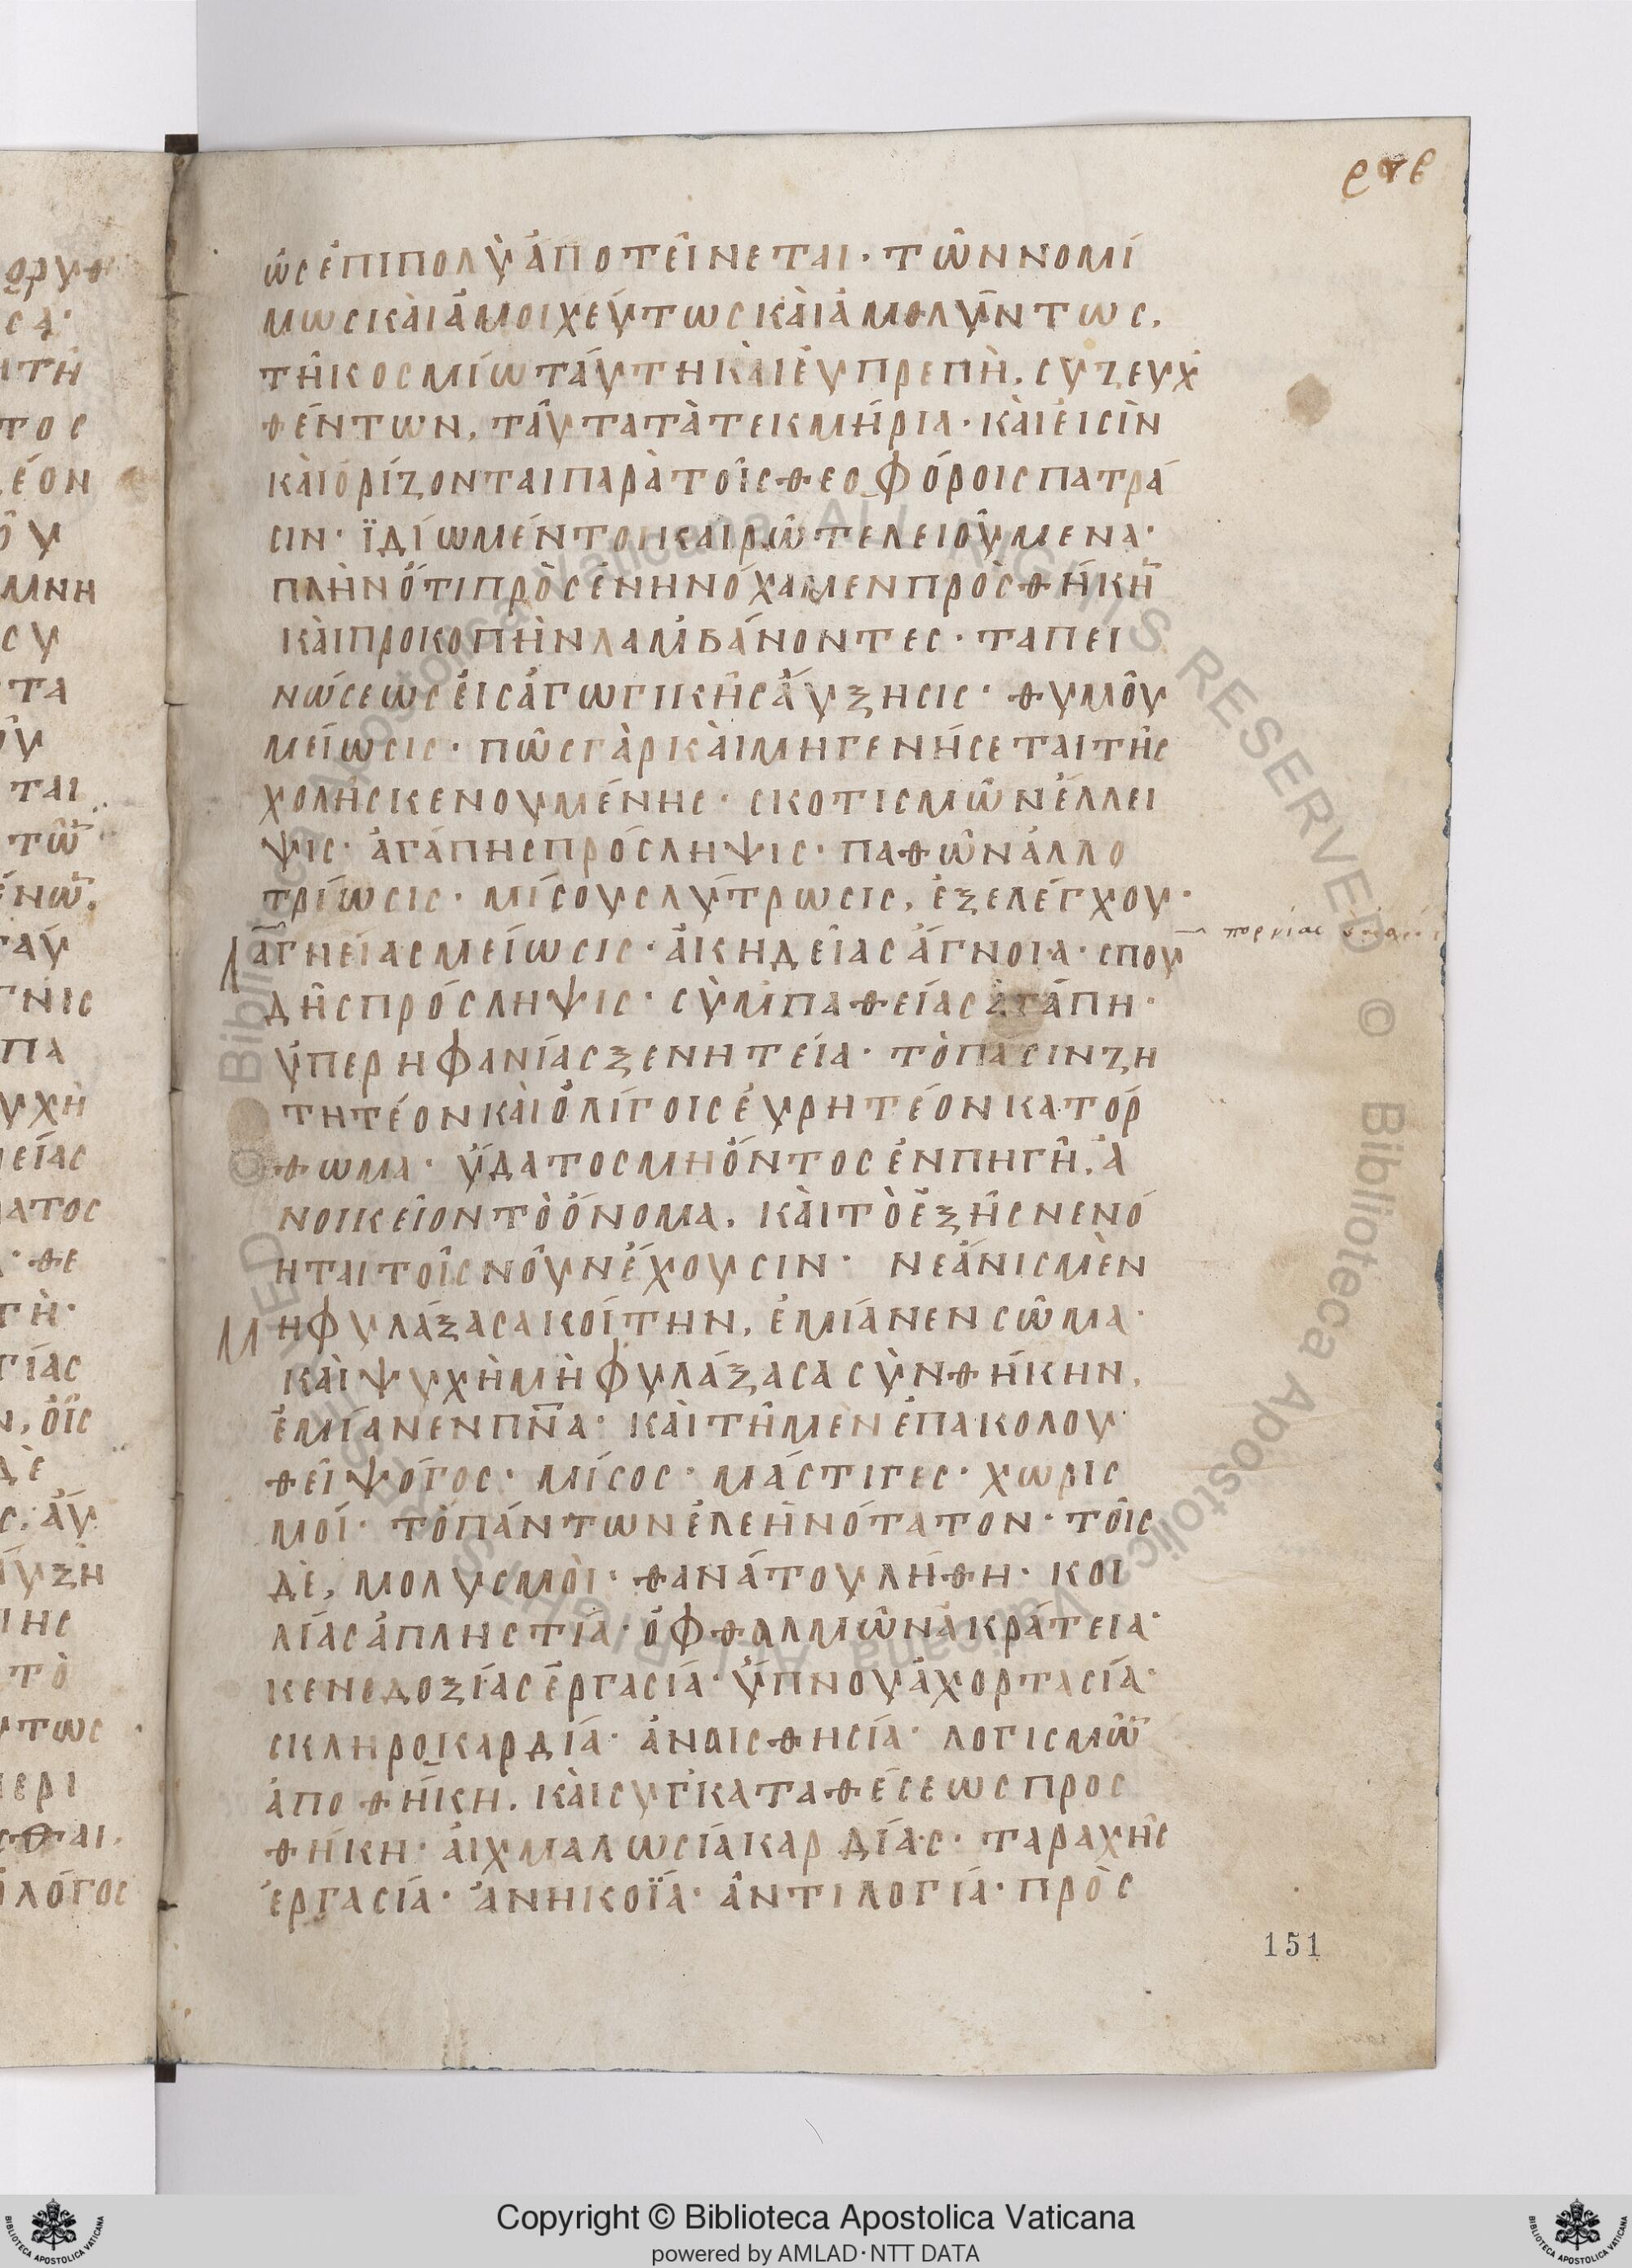 ὡς ἐπιπολὺ ἀποτείνεται· τῶν νομί
μως καὶ ἀμοιχεύτως καὶ ἀμολύντως,
τῆ κοσμίω ταύτη καὶ ἐυπρεπῆ, συζευχ
θέντων, ταῦτα τὰ τεκμήρια· καὶ ἐισὶν
καὶ ὁρίζονται παρὰ τοῖς θεοφόροις πατρά
σιν· ϊδίω μέντοι καιρῶ τελειούμενα·
πλὴν ὅτι πρὸς ἐνηνόχαμεν πρὸς θήκη̅
καὶ προκοπὴν λαμβάνοντες· ταπει
νώσεως ἐισάγωγικῆς ἄυξησις· θυμοῦ
μείωσις· πῶς γὰρ καὶ μη γενήσεται τῆς
χολῆς κενουμένης· σκοτισμῶν ἔλλει
ψις· ἀγάπης πρόσληψις· παθῶν ἀλλο
τρίωσις· μίσους λύτρωσις, ἐξ ἐλέγχου·
ἁγνείας μείωσις· ἀκηδείας ἄγνοια· σπου
δῆς πρόσληψις· σὺμπαθείας ἀγάπη·
ὑπερηφανίας ξενητεία· τὸ πάσιν ζη
τητέον καὶ ὀλίγοις ἑυρητέον κατόρ
θωμα· ὕδατος μη ὄντος ἐν πηγῆ, ἀ
νοικεῖον τὸ ὄνομα, καὶ τὸ ἑξῆς νενό
ηται τοῖς νοῦν ἔχουσιν· νεάνις μὲν
μη φυλάξασα κοίτην, ἐμίανεν σῶμα·
καὶ ψυχὴ μὴ φυλάξασα σὺνθήκην,
ἐμίανεν πν̅α· καὶ τῆ μὲν ἐπακολου
θεῖ ψόγος· μίσος· μάστιγες· χωρισ
μοί· τὸ πάντων ἐλεηνότατον· τοῖς
δὲ, μολυσμοὶ· θανάτου λήθη· κοι
λίας ἀπληστία· ὀφθαλμῶν ἀκράτεια·
κενοδοξίας ἐργασία· ὕπνου ἀχορτασία·
σκληροκαρδία· ἀναισθησία· λογισμῶ̅
ἀποθήκη, καὶ συγκαταθέσεως προσ
θήκη· ἀιχμαλωσία καρδίας· ταραχῆς
ἐργασία· ἀνηκοϊα· ἀντιλογία· πρὸς
151
Copyright © Biblioteca Apostolica Vaticana
powered by AMLAD·NTT DATA